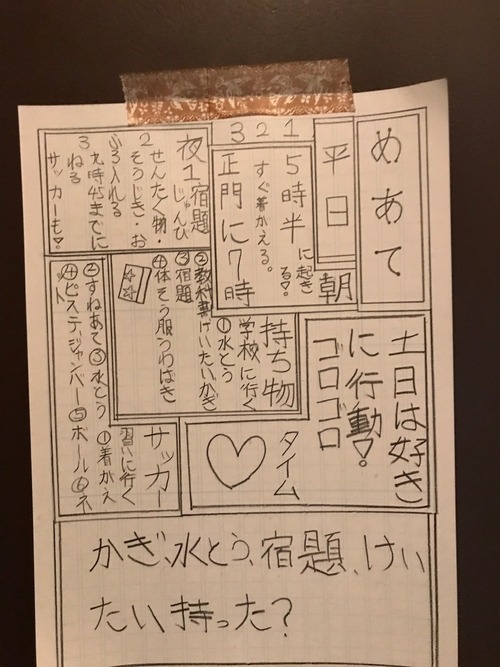 めあて
平日
朝
1 5時半に起きる♡
2 すぐ着がえる。
3 正門に7時
夜1宿題
じゅんび
2
せんたく物・
そうじき・お
ふろ入れる
3
九時45までに
ねる
サッカーも♡
土日は好き
に行動♡
ゴロゴロ
タイム
持ち物
学校に行く
①水とう
②教科書けいたい、かぎ
③宿題
④体そう服うわばき
サッカー
習いに行く
①着がえ
②すねあて③水とう
④ビステイジャンパー⑤ボール⑥ネ
ット
かぎ、水とう、宿題、けい
たい持った?